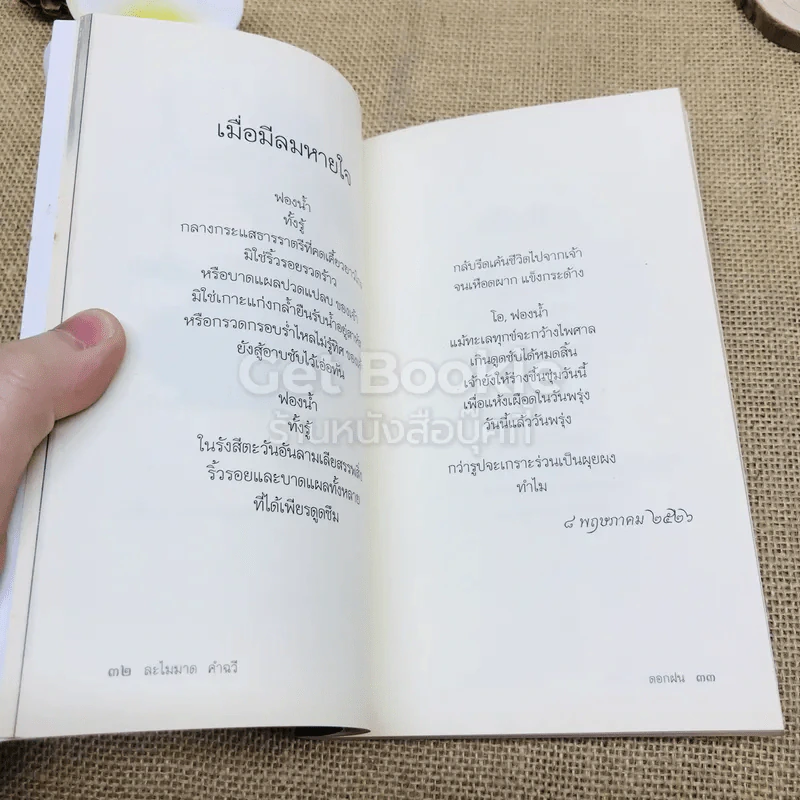 เมื่อมีลมหายใจ
ฟองน้ำ
ทั้งรู้
กลางกระแสธารราตรีที่คดเคี้ยว
มิใช่ริ้วรอยรวดร้าว
หรือบาดแผลปวดแปลบ ของ
มิใช่เกาะแก่งกล้ำยืนรับน้ำอยู่
หรือกรวดกรอบร่ำไหลไม่รู้ทิศ
ยังสู้อาบซับไว้เอ่อทัน
ฟองน้ำ
ทั้งรู้
ในรังสีตะวันอันลามเลียสรรพสิ่ง
ริ้วรอยและบาดแผลทั้งหลาย
ที่ได้เพียรดูดซึม
๓๒ ละไมมาด คำฉวี
กลับรีดเค้นชีวิตไปจากเจ้า
จนเหือดผาก แข็งกระด้าง
โอ, ฟองน้ำ
แม้ทะเลทุกข์จะกว้างไพศาล
เกินดูดซับได้หมดสิ้น
เจ้ายังให้ร่างชื่นชุ่มวันนี้
เพื่อแห้งเผือดในวันพรุ่ง
วันนี้แล้ววันพรุ่ง
กว่ารูปจะเกราะร่วนเป็นผุยผง
ทำไม
๘ พฤษภาคม ๒๕๒๖
ดอกฝน ๓๓
Get Bookie
ร้านหนังสือบุ๊คกี้